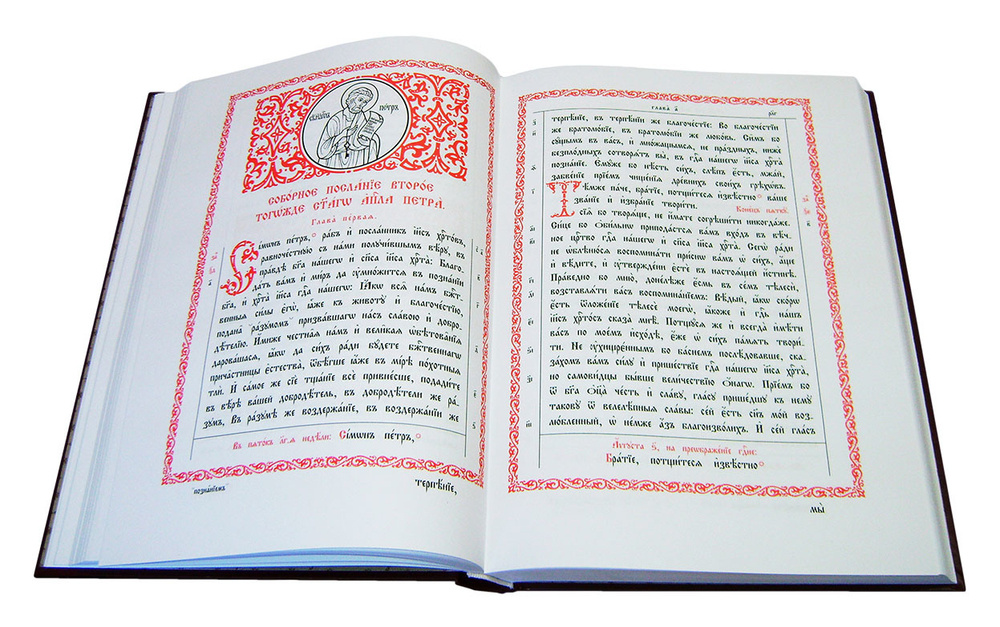 СОБОРНОЕ ПОСЛАНІЕ ВТОРОЕ
ТОГѠЖДЕ СТ҃АГѠ АП҃ЛА ПЕТРА̀.
Глава̀ пе́рваѧ.
Сі́мѡнъ пе́тръ, ра́бъ и҆ посла́нникъ і҆и҃съ хр҃то́въ,
равноче́стную съ на́ми получи́вшымъ вѣ́ру, въ
пра́вдѣ бг҃а на́шегѡ и҆ сп҃са і҆и҃са хр҃та̀: Благо-
да́ть ва́мъ и҆ ми́ръ да ᲂу҆мно́житсѧ въ позна́нїи
бг҃а, и҆ хр҃та̀ і҆и҃са гд҃а на́шегѡ. Ꙗ҆́кѡ всѧ̑ на́мъ бж҃т-
венныѧ си̑лы є҆гѡ̀, ꙗ҆̀же къ животꙋ̀ и҆ благоче́стїю,
пода́на ра́зꙋмомъ призва́вшагѡ на́съ сла́вою и҆ добро-
дѣ́телїю. И҆́миже чєстна́ѧ на́мъ и҆ вели̑каѧ ѡ҆бѣтова̑нїѧ
дарова́шасѧ, ꙗ҆́кѡ да си́хъ ра́ди бꙋ́дете бж҃е́ственнагѡ
прича̑стницы є҆стества̀, ѿбѣ́гше ꙗ҆́же въ мі́рѣ похотны́ѧ
тлѝ. И҆ въ са́мое же сїѐ тща́нїе всѐ привне́сше, подади́те
въ вѣ́рѣ ва́шей добродѣ́тель, въ добродѣ́тели же ра́-
зꙋмъ, Въ ра́зꙋмѣ же воздержа́нїе, въ воздержа́нїи же
Въ пято́къ л҃г-ѧ недѣ́ли: Сі́мѡнъ пе́тръ,
терпѣ́нїе,
позна́нїемъ
Глава̀ а҃
терпѣ́нїе, въ терпѣ́нїи же благоче́стїе: Во благоче́стїи
же братолю́бїе, въ братолю́бїи же любо́вь. Сі̑мъ бо
сꙋ́щымъ въ ва́съ, и҆ мно́жащымсѧ, не пра́здныхъ, нижѐ
безпло́дныхъ сотворѧ́тъ вы̀, въ гд҃а на́шегѡ і҆и҃са хр҃та̀
позна́нїе. Є҆мꙋ́же бо нѣ́сть си́хъ, слѣ́пъ є҆́сть, мжа́й,
забве́нїе прїе́мъ ѡ҆чище́нїѧ дре́внихъ свои́хъ грѣхѡ́въ.
Тѣ́мже па́че, бра́тїе, потщи́тесѧ и҆звѣ́стно ва́ше
зва́нїе и҆ и҆збра́нїе твори́ти.
Коне́цъ пяткꙋ̀.
Сїѧ̑ бо творѧ́ще, не и҆́мате согрѣши́ти никогда́же.
Си́це бо ѻ҆би́льнѡ препода́стсѧ ва́мъ вхо́дъ въ вѣ́ч-
ное црⷭ҇тво гд҃а на́шегѡ и҆ сп҃са і҆и҃са хр҃та̀. Сегѡ̀ ра́ди
не ѡ҆блѣню́сѧ воспомина́ти при́снѡ ва́мъ ѡ҆ си́хъ, а҆́ще
и҆ вѣ́дите, и҆ ᲂу҆твержде́ни є҆стѐ въ настоѧ́щей и҆́стинѣ.
Пра́ведно бо мню̀, доне́лѣже є҆́смь въ се́мъ тѣлесѝ,
возставлѧ́ти ва́съ воспомина́нїемъ: Вѣ́дый, ꙗ҆́кѡ ско́рѡ
є҆́сть ѿложе́нїе тѣлесѐ моегѡ̀, ꙗ҆́коже и҆ гд҃ь на́шъ
і҆и҃съ хр҃то́съ сказа̀ мнѣ̀. Потщꙋ́сѧ же и҆ всегда̀ и҆мѣ́ти
ва́съ по мое́мъ и҆схо́дѣ, є҆́же ѡ҆ си́хъ па́мѧть твори́-
ти. Не ᲂу҆хищрє́ннымъ бо ба́снемъ послѣ́довавше, ска-
за́хомъ ва́мъ си́лꙋ и҆ прише́ствїе гд҃а на́шегѡ і҆и҃са хр҃та̀,
но самови́дцы бы́вше вели́чествїю ѻ҆́нагѡ. Прїе́мъ бо
ѿ бг҃а ѻ҆ц҃а̀ че́сть и҆ сла́вꙋ, гла́сꙋ прише́дшꙋ къ немꙋ̀
такову̀ ѿ велелѣ́пныѧ сла́вы: се́й є҆́сть сн҃ъ мо́й воз-
лю́бленный, ѡ҆ не́мже а҆́зъ благоизво́лихъ. И҆ се́й гла́съ
А҆́ѵгꙋста ѕ҃, на преѡбраже́нїе гдⷭ҇не:
Бра́тїе, потщи́тесѧ и҆звѣ́стно
мы̀